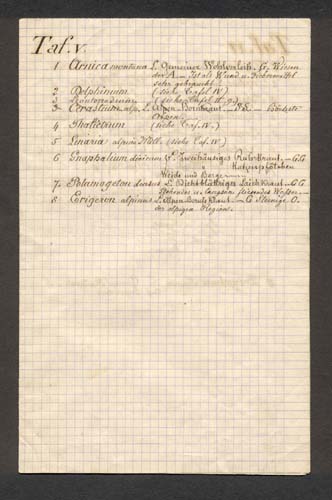 Taf. V.
1 Arnica montana L. Gemeiner Wohlverleih. G. Wiesen
der A. — Ist als Wund u. Fiebermittel
sehr gebraucht.
2 Delphinium (siehe Tafel IV)
3 (siehe Tafel II 9.)
3 Cerastium alp. L. Alpen-Hornkraut
Orten.
4 Thalictrum (siehe Taf. IV.)
5 Linaria alpina Mill. (siehe Taf. IV.)
6 Gnaphalium dioicum L. Zweihäusiges Ruhrkraut. — G.G.
" Katzenpfötchen
Weide und Berge
7 Potamogeton densus L. Dichtblättriges Laichkraut. G G
Stehendes u. langsam fliessendes Wasser.
8 Erigeron alpinus L. Alpen-Berufskraut — G Steinige O.
der alpigen Region.